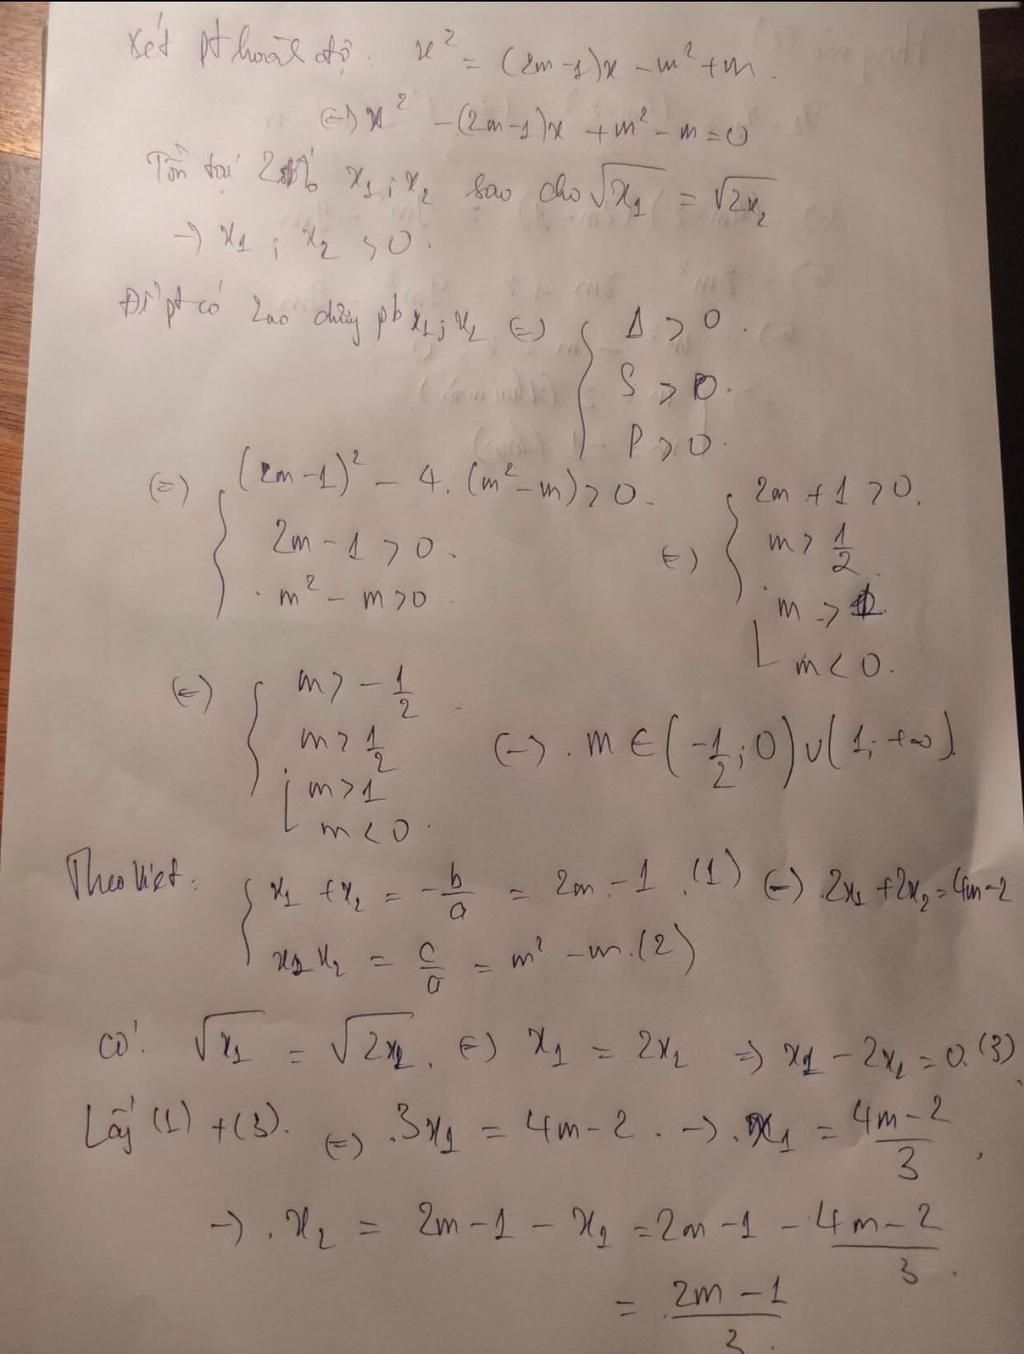 Xét pt hoành độ. x² = (2m-1)x - m² + m.
(=) x² - (2m-1)x + m² - m = 0
Tồn tại 2 x₁; x₂ sao cho √x₁ = √2x₂
→ x₁; x₂ > 0.
Để pt có 2 no dương pb x₁; x₂ (=) { Δ > 0.
S > 0.
P > 0.
(=) { (2m-1)² - 4.(m²-m) > 0.
2m - 1 > 0.
m² - m > 0
(=) { 2m + 1 > 0.
m > 1/2
[ m > 1
m < 0.
(=) { m > -1/2
m > 1/2
[ m > 1
m < 0.
(=) . m ∈ (-1/2; 0) ∪ (1; +∞).
Theo Viet: { x₁ + x₂ = -b/a = 2m - 1 .(1) (=) .2x₁ + 2x₂ = 4m-2
x₁x₂ = c/a = m² - m.(2)
Có: √x₁ = √2x₂. (=) x₁ = 2x₂ => x₁ - 2x₂ = 0.(3)
Lấy (1) + (3). (=) .3x₁ = 4m-2. → .x₁ = (4m-2)/3
→ . x₂ = 2m-1 - x₁ = 2m-1 - (4m-2)/3.
= (2m-1)/3.